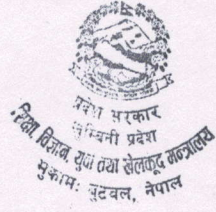 प्रदेश सरकार
लुम्बिनी प्रदेश
शिक्षा, विज्ञान, युवा तथा खेलकूद मन्त्रालय
मुकामः बुटवल, नेपाल